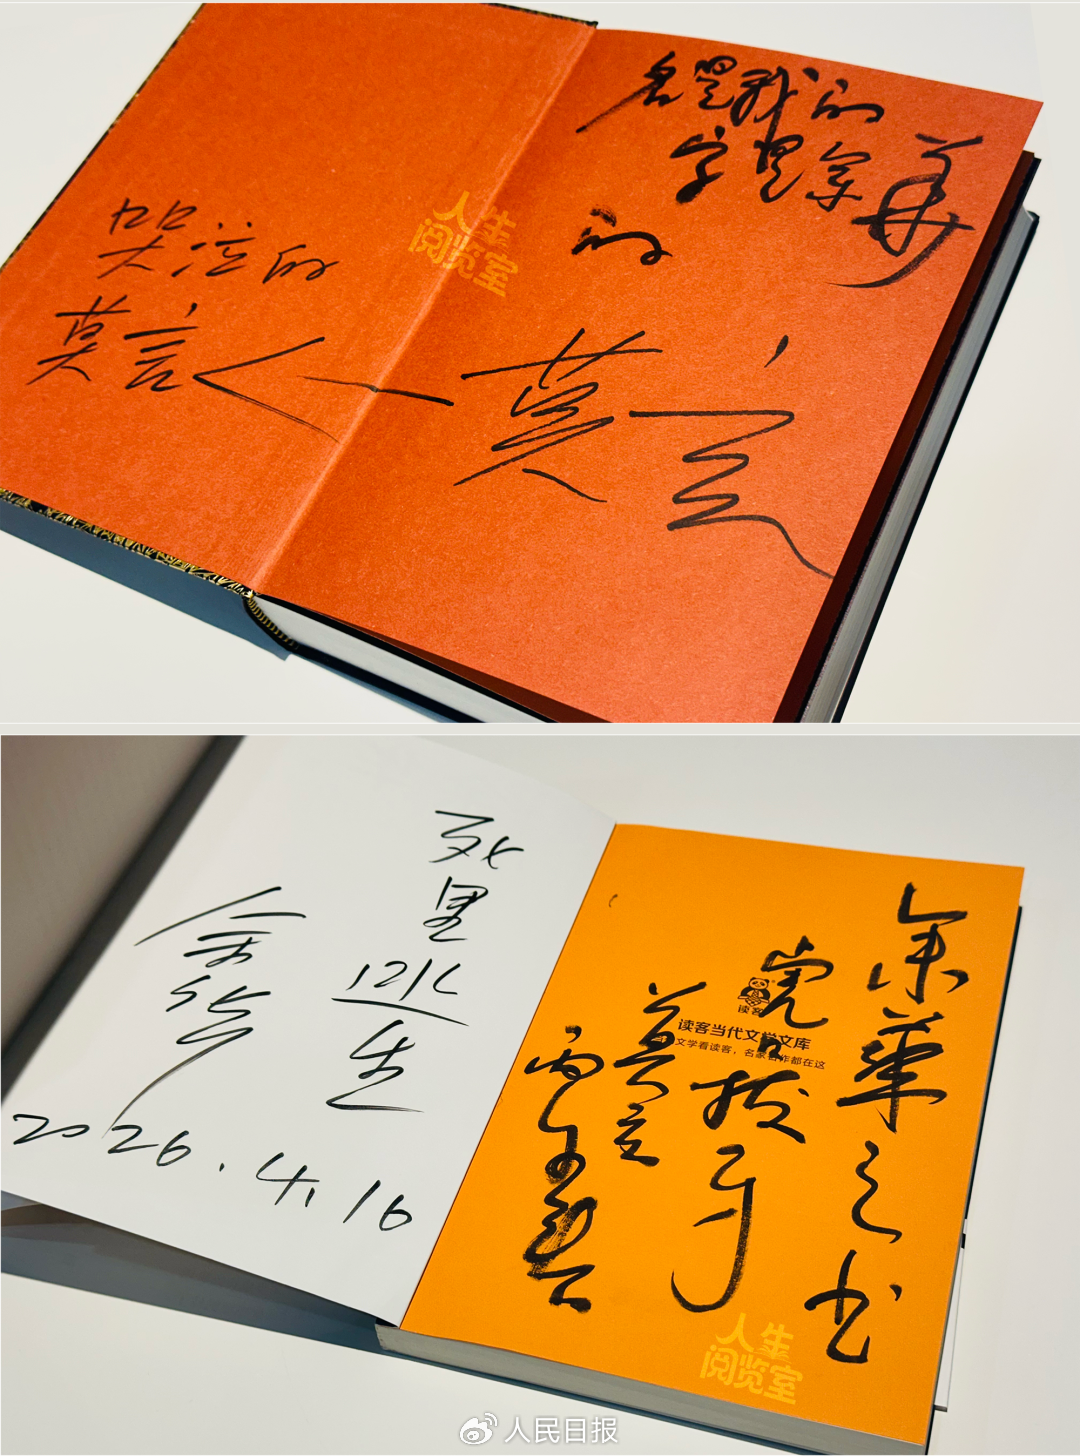 哭泣的
莫言
名是我的
字是余华
的
莫言
人生
阅览室
死里逃生
余华
2026.4.16
余华之书
虎口拔牙
莫言
丙午
读客
读客当代文学文库
文学看读客，名家名作都在这
人生
阅览室
人民日报